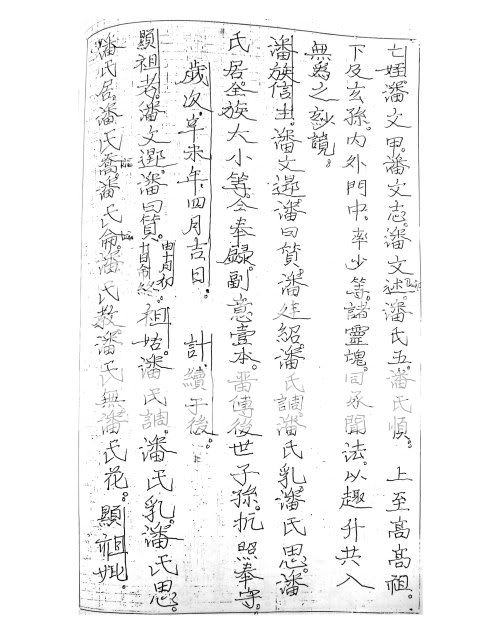 亡姪潘文甲。潘文志。潘文述。潘氏五。潘氏順。 上至高高祖。
下及玄孫。內外門中。率少等。諸靈塊。同承聞法。以趣升共入
無為之玅境。
潘族信主。潘文遵。潘曰贊。潘廷紹。潘氏調。潘氏乳。潘氏思。潘
氏居。全族大小等。仝奉錄副意壹本。畱傳後世子孫。抗照奉守。
歲次。辛未年。四月吉日。 計續于後。
顯祖考。潘文遵。潘曰贊。 祖姑。潘氏調。潘氏乳。潘氏思。
潘氏居。潘氏喬。潘氏侖。潘氏教。潘氏無。潘氏花。 顯祖妣。